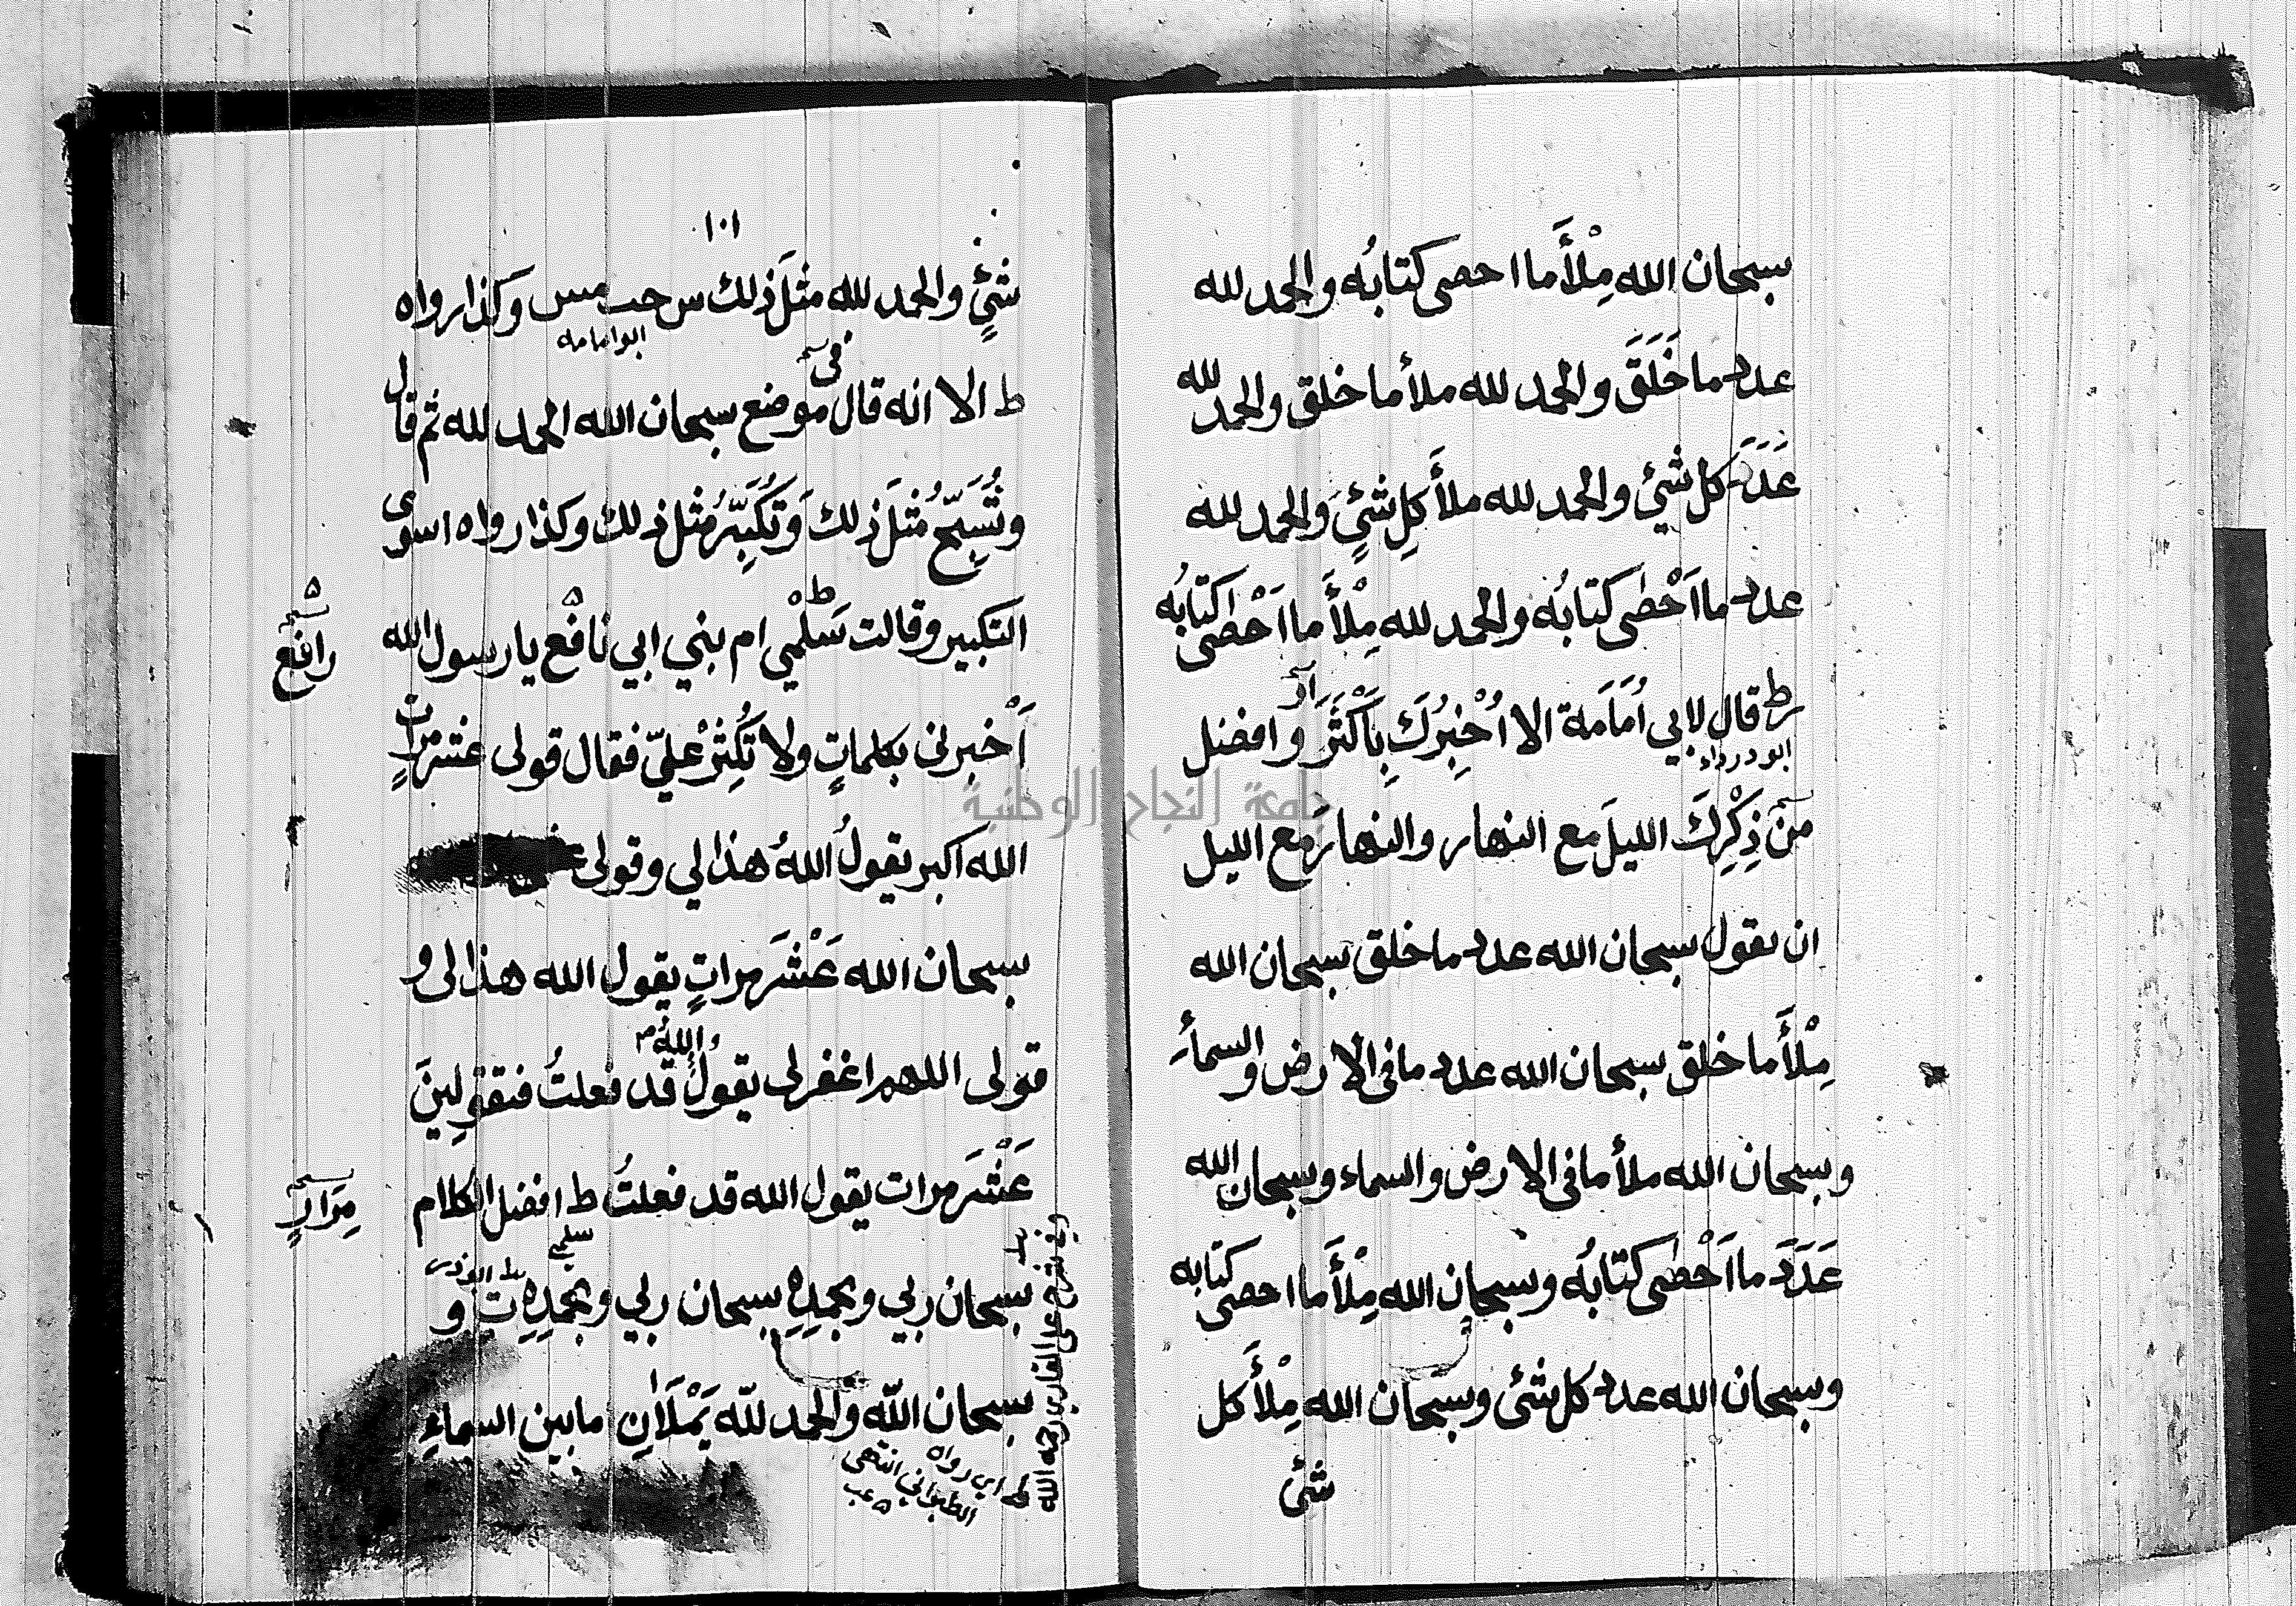 سبحان الله مِلْأَ ما احصى كتابُه والحمد لله
عدد ما خَلَقَ والحمد لله ملأ ما خلق والحمد لله
عَدَدَ كل شئ والحمد لله ملأَ كلِ شئٍ والحمد لله
عدد ما اَحْصٰى كتابُه والحمد لله مِلْأَ ما اَحْصٰى كتابُه
ر ط قال لابي اُمَامَة الا اُخْبِرُكَ بِاَكْثَرَ وافضل
ابو درداء
من ذِكْرِكَ الليلَ مع النهار والنهارَ مع الليل
ان تقول سبحان الله عدد ما خلق سبحان الله
مِلْأَ ما خلق سبحان الله عدد ما فى الارض والسماء
وسبحان الله ملأ ما فى الارض والسماء وسبحان الله
عَدَدَ ما اَحْصٰى كتابُه وسبحان الله مِلْأَ ما احصى كتابه
وسبحان الله عدد كل شئ وسبحان الله مِلْأَ كل
شئ
١٠١
شئٍ والحمد لله مثلَ ذلك س حب مس وكذا رواه
ابو امامه
ط الا انه قال فى موضع سبحان الله الحمد لله ثم قال
وتُسَبِّحُ مثلَ ذلك وَتُكَبِّرُ مثل ذلك وكذا رواه ا سوى
التكبير ط وقالت سَلْمٰى ام بني ابي نافع يا رسول الله
رافع
اَخْبِرنى بكلماتٍ ولا تُكْثِرْ عليّ فقال قولى عشر مراتٍ
الله اكبر يقولُ اللهُ هذا لي وقولى
سبحان الله عَشْرَ مراتٍ يقول الله هذا لى و
قولى اللهم اغفر لى يقولُ اللهُ قد فعلتُ فتقولِينَ
عَشْرَ مرات يقول الله قد فعلتُ ط افضل الكلام
مِرَارٍ
سلمى
سبحان ربي وبحمدِه سبحان ربي وبحمدِه ت و
سبحان اللّه والحمد للّه يَمْلَاٰنِ ما بين السماءِ
وفى شرح على القارى رحمه الله
اي رواه
الطبراني انتهى
جامعة النجاح الوطنية